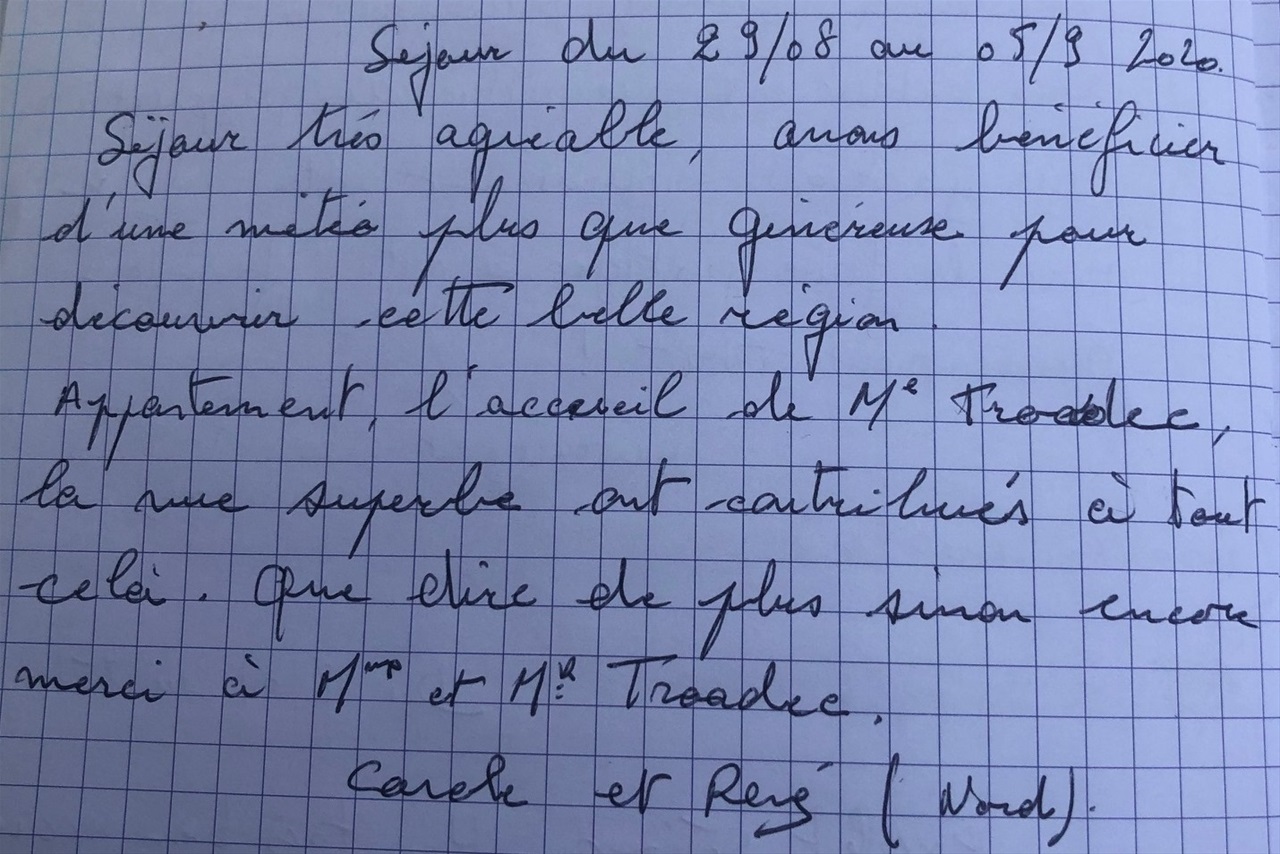 Séjour du 29/08 au 05/9 2020.
Séjour très agréable, avons bénéficier
d'une météo plus que généreuse pour
découvrir cette belle région.
Appartement, l'accueil de Me Troadec,
la vue superbe ont contribués à tout
celà. Que dire de plus sinon encore
merci à Mme et MR Troadec.
Carole et René (Nord).